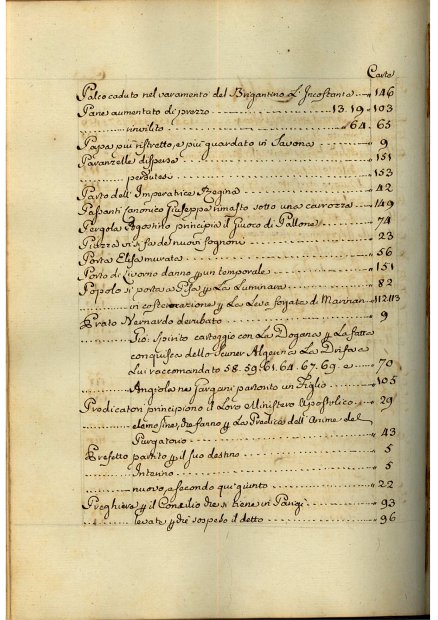 Carte
Palco caduto nel varamento del Brigantino L'Incostante " 146
Pane aumentato di prezzo 13. 19 " 103
rinvilito " 64. 65
Papa più ristretto, e più guardato in Savona " 9
Paranzelle disperse " 151
perdutesi " 153
Parto dell'Imperatrice Regina " 42
Passanti Canonico Giuseppe rimasto sotto una carrozza " 149
Pergola Agostino principia il Giuoco di Pallone " 74
Piazza vi si fa de nuovi fognoni " 23
Porta Elisa murata " 56
Porto di Livorno danno p un temporale " 151
Popolo si porta a Pisa p La Luminara " 82
in costernazione p La Leva forzata di Marinari " 112. 113
Prato Bernardo derubato " 9
Gio: Spirito carteggio con La Dogana p La fatta
conquista dello
Lui raccomandato 58. 59. 61. 64. 67. 69. e " 70
Angiola ne' Gargani partorito un Figlio " 105
Predicatori principiono il Loro Ministero Apostolico " 29
elemosine, che fanno p La Predica dell'Anime del
Purgatorio " 43
Prefetto partito p il suo destino " 5
Interino " 5
nuovo, a secondo qui giunto " 22
Preghiera p il Concilio che si tiene in Parigi " 93
levate p che sospeso il detto " 96